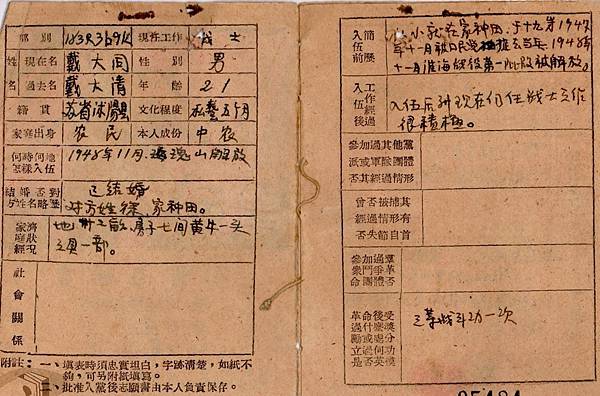 部別 183R3b9K 現在工作 战士
姓名 現在名 戴大同 性別 男
過去名 戴大清 年齡 21
籍貫 苏省沭陽县 文化程度 私塾五个月
家庭出身 农民 本人成份 中农
何時何地怎樣入伍 1948年11月 山解放
結婚否對方姓名略歷 已结婚
对方姓徐、家种田。
家庭經濟狀況 地卅二畝 房子七间黄牛一头
一部。
社會關係
附註:一、填表時須忠實坦白,字跡清楚,如紙不
夠,可另附紙填寫。
二、批准入黨後志願書由本人負責保存。
入伍前簡歷 小就在家种田,于十九岁1947
年十月被 去当兵 1948年
十一月淮海战役第一次 被解放。
入伍後工作經過 入伍后到现在仍任战士工作
很積極。
參加過其他黨派或軍隊團體否其經過情形
曾否被捕其經過情形有否失節自首
參加過羣衆鬥爭革命團體否
革命後受過什麽獎勵或處分立過何功是否英模 立革战斗功一次